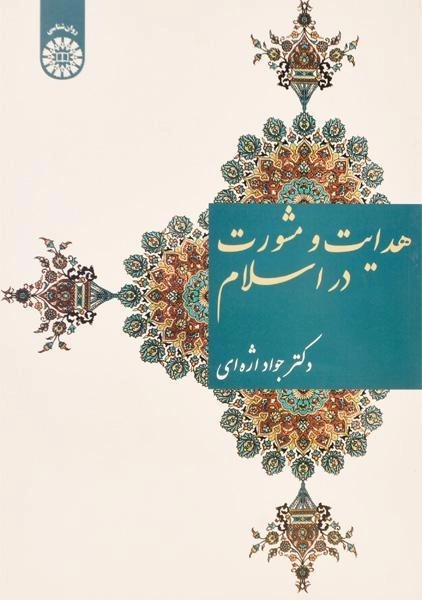 روان‌شناسی
هدایت و مشورت
در اسلام
دکتر جواد اژه‌ای